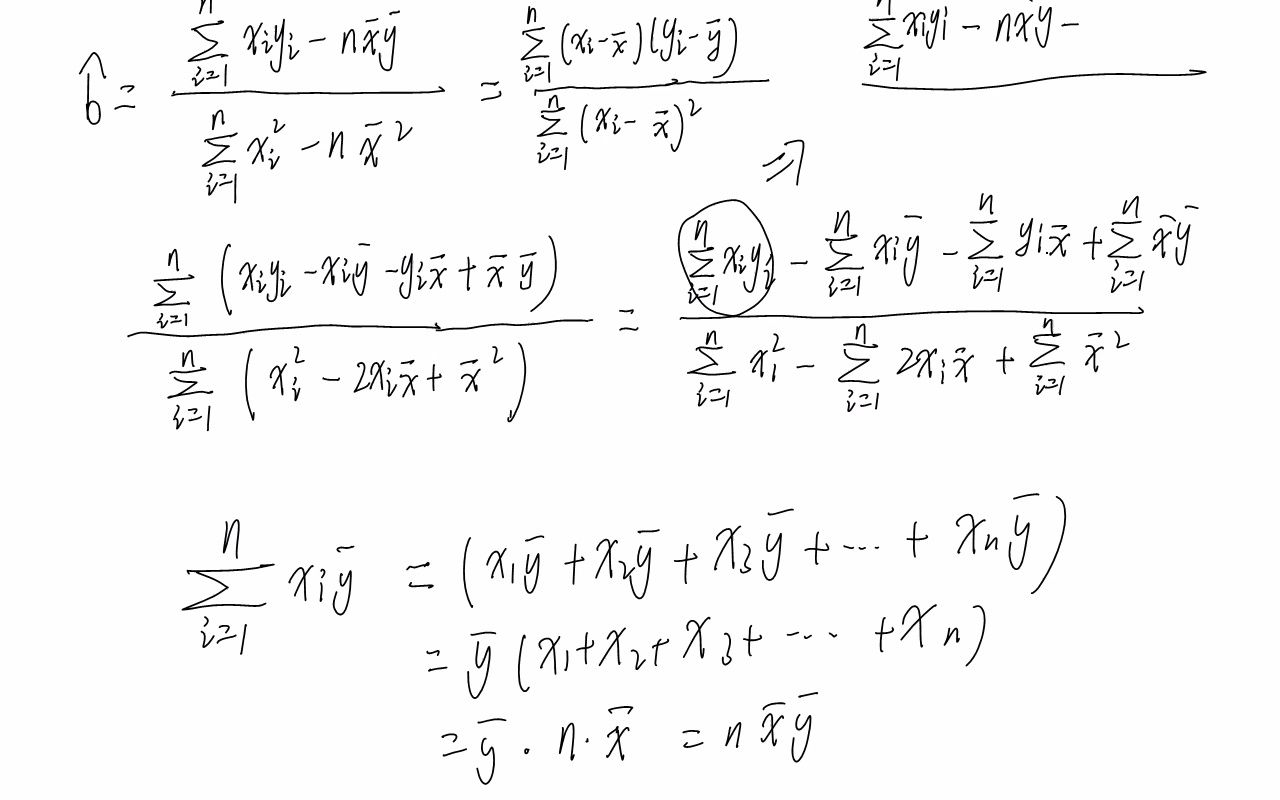 b̂ = (∑_{i=1}^{n} xᵢyᵢ − n x̄ȳ) / (∑_{i=1}^{n} xᵢ² − n x̄²) = (∑_{i=1}^{n} (xᵢ − x̄)(yᵢ − ȳ)) / (∑_{i=1}^{n} (xᵢ − x̄)²)
∑_{i=1}^{n} xᵢyᵢ − n x̄ȳ −
⇒
(∑_{i=1}^{n} (xᵢyᵢ − xᵢȳ − yᵢx̄ + x̄ ȳ)) / (∑_{i=1}^{n} (xᵢ² − 2xᵢx̄ + x̄²)) = (∑_{i=1}^{n} xᵢyᵢ − ∑_{i=1}^{n} xᵢȳ − ∑_{i=1}^{n} yᵢx̄ + ∑_{i=1}^{n} x̄ȳ) / (∑_{i=1}^{n} xᵢ² − ∑_{i=1}^{n} 2xᵢx̄ + ∑_{i=1}^{n} x̄²)
∑_{i=1}^{n} xᵢȳ = (x₁ȳ + x₂ȳ + x₃ȳ + ... + xₙȳ)
= ȳ (x₁ + x₂ + x₃ + .... + xₙ)
= ȳ · n · x̄ = n x̄ȳ